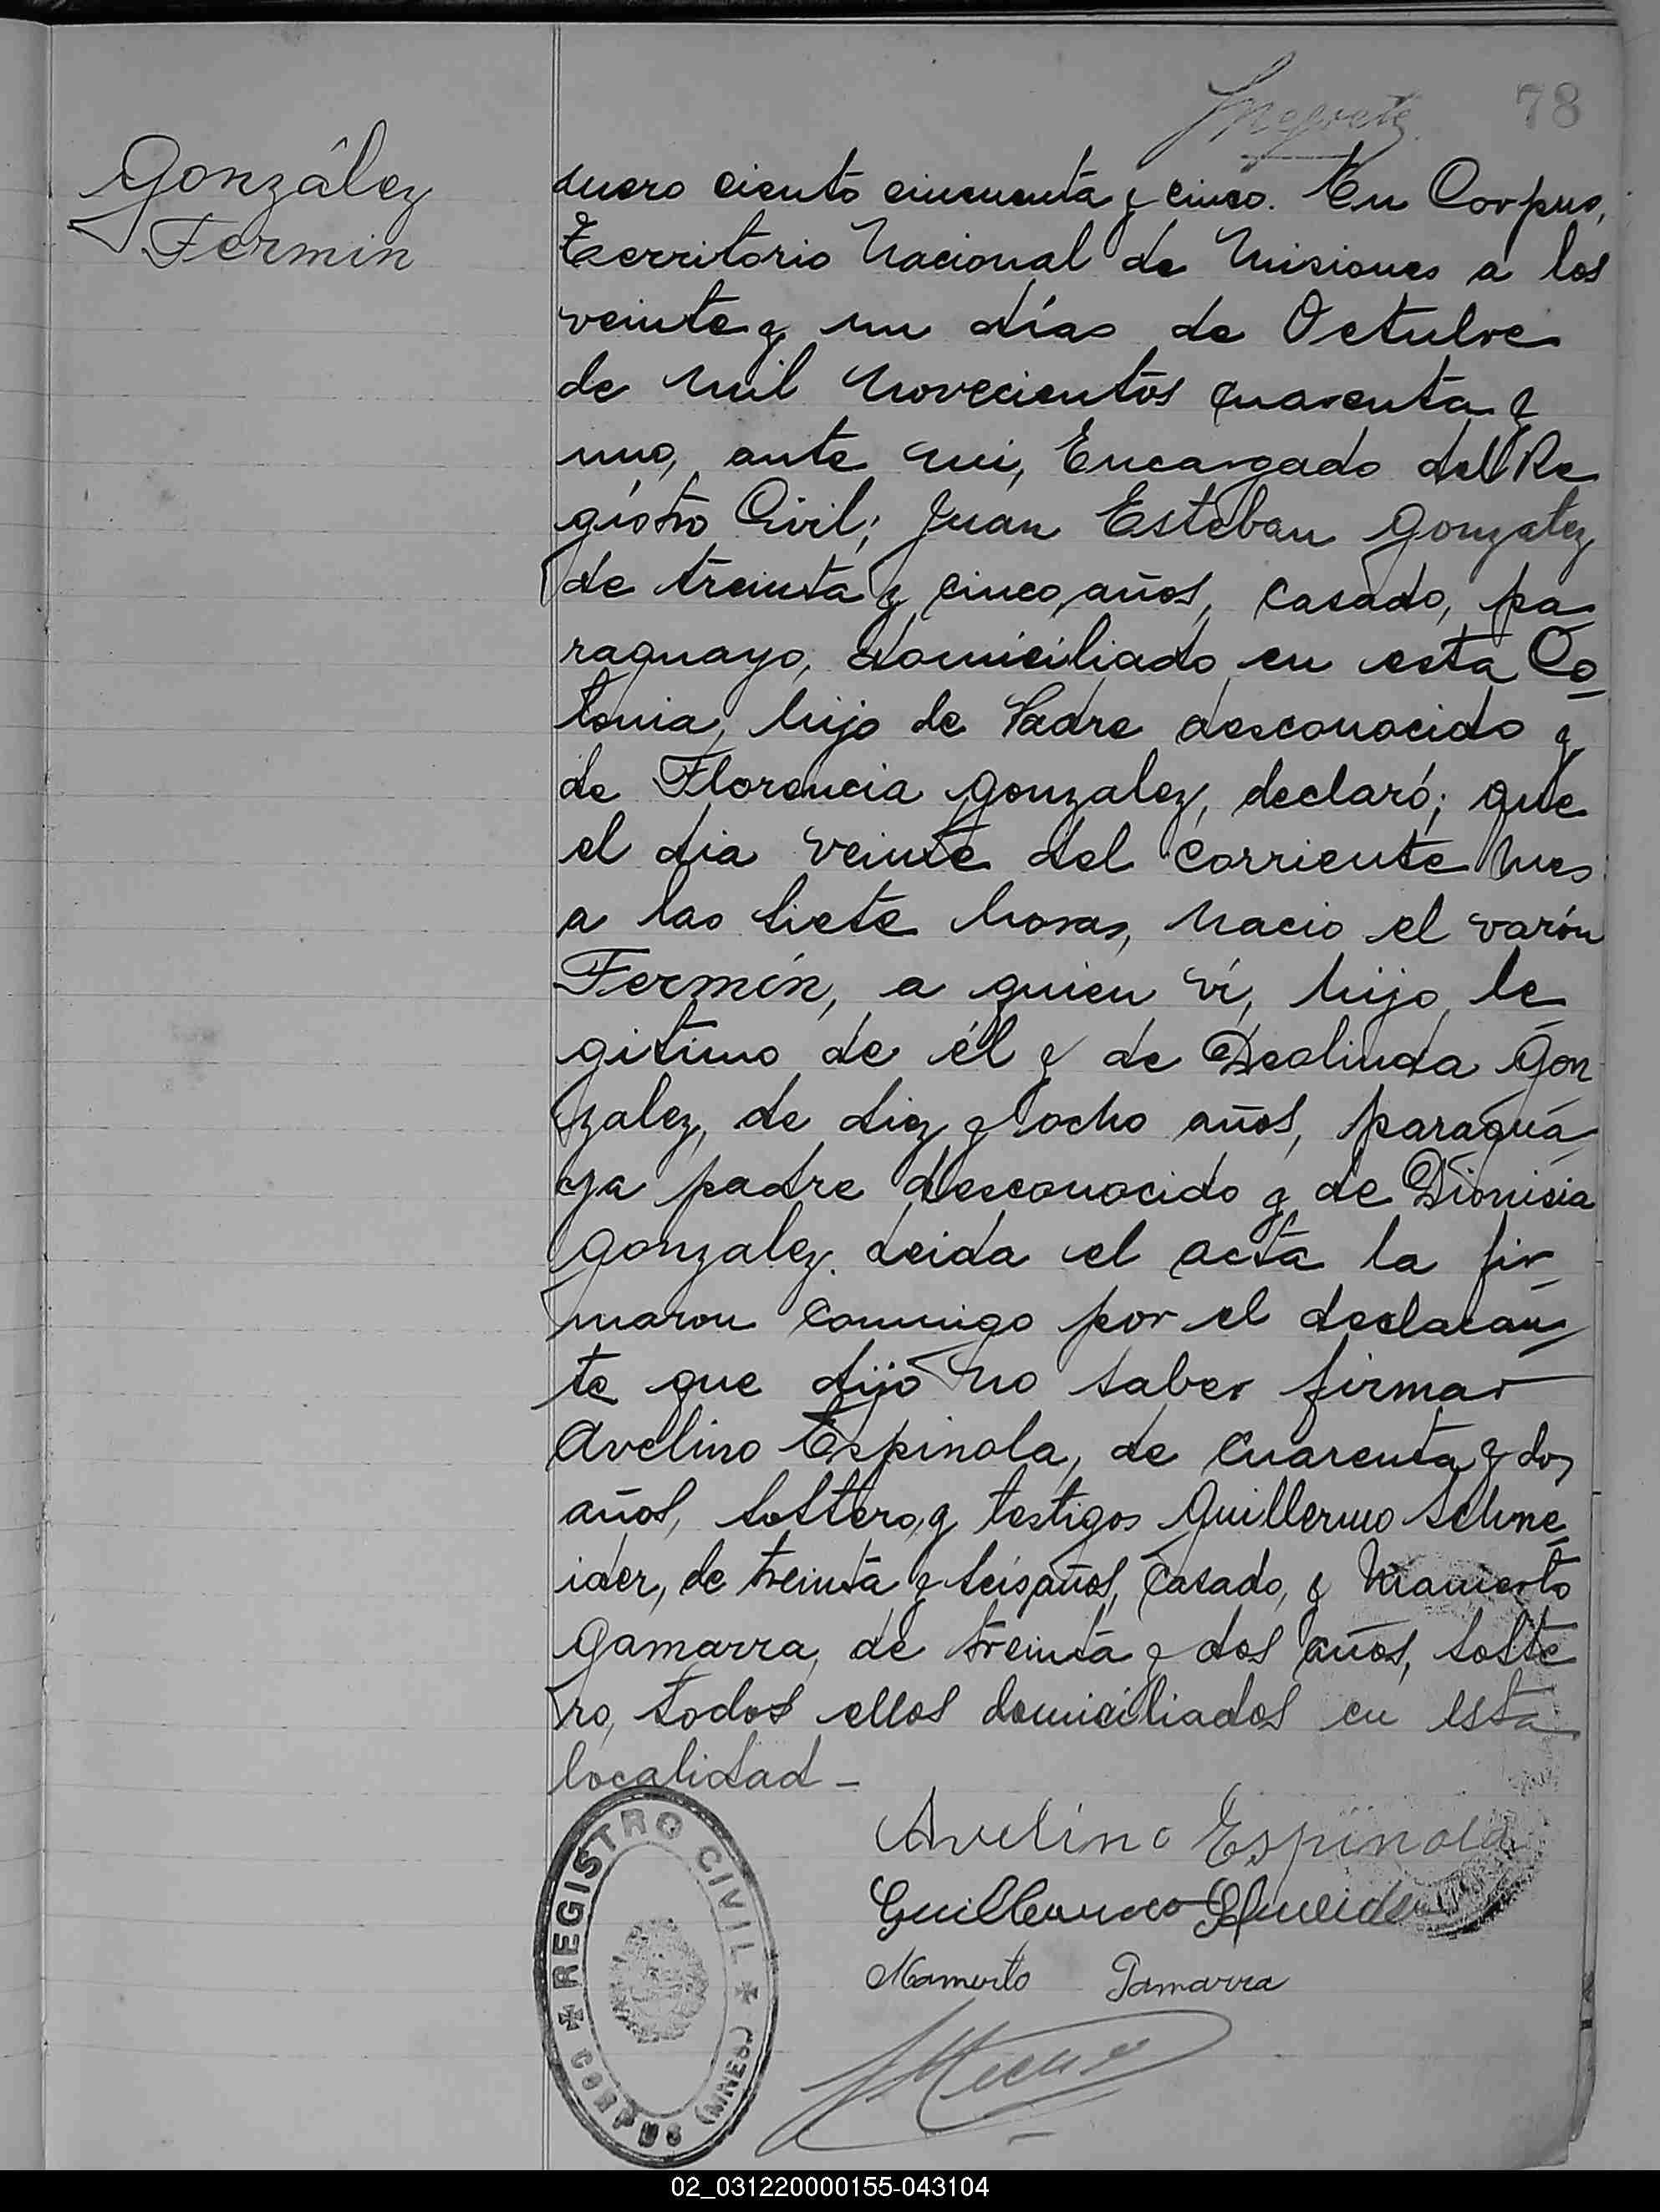 78
González
Fermin
mero ciento cincuenta y cinco. En Corpus,
Territorio Nacional de Misiones a los
veinte y un días de Octubre
de mil novecientos cuarenta y
uno, ante mi, Encargado del Re
gistro Civil; Juan Esteban Gonzalez
de treinta y cinco años, casado, pa
raguayo, domiciliado en esta Co
lonia, hijo de Padre desconocido y
de Florencia Gonzalez, declaró; que
el dia veinte del corriente mes
a las siete horas, nacio el varón
Fermín, a quien ví, hijo le
gitimo de él y de Deolinda Gon
zalez, de diez y ocho años, paragua
ya padre desconocido y de Dionisia
Gonzalez. Leida el acta la fir
maron conmigo por el declaran
te que dijo no saber firmar
Avelino Espinola, de cuarenta y dos
años, soltero, y testigos Guillermo Schne
ider, de treinta y seis años, casado, y Mamerto
Gamarra, de treinta y dos años, solte
ro, todos ellos domiciliados en esta
localidad -
Avelino Espinola
Guillermo Schneider
Mamerto Gamarra
REGISTRO CIVIL
CORPUS (MNES)
02_031220000155-043104